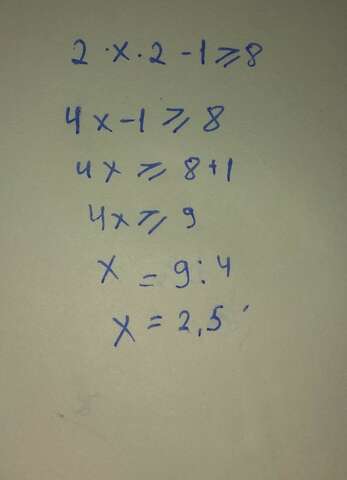 2·x·2-1⩾8
4x-1⩾8
4x⩾8+1
4x⩾9
x=9:4
x=2,5